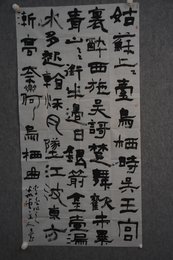 姑蘇上臺烏棲時吳王宮
裏醉西施吳歌楚舞歡未畢
青山銜邊日銀箭金壺漏
水多起看秋月墜江波東方
漸高奈何烏棲曲